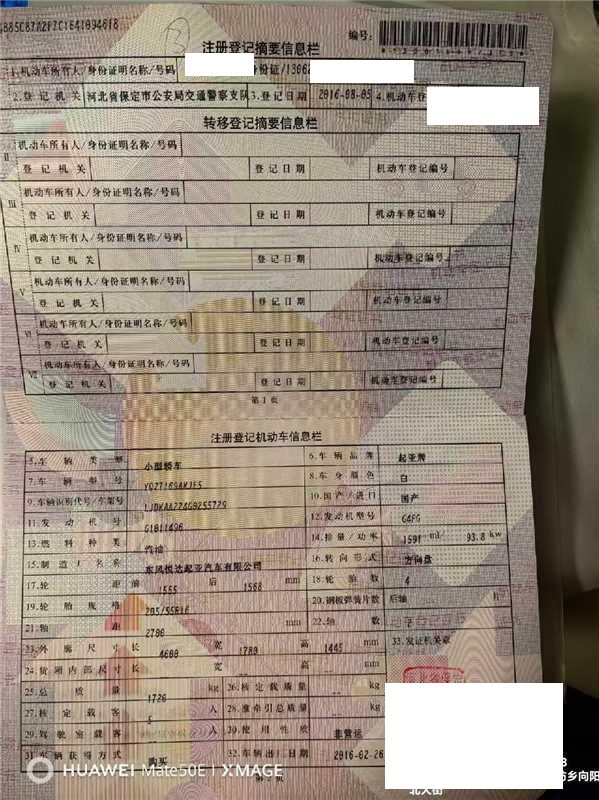 编号:
注册登记摘要信息栏
1.机动车所有人/身份证明名称/号码 身份证/1306
2.登记机关 河北省保定市公安局交通警察支队 3.登记日期 2016-08-05 4.机动车登
转移登记摘要信息栏
II 机动车所有人/身份证明名称/号码
登记机关 登记日期 机动车登记编号
III 机动车所有人/身份证明名称/号码
登记机关 登记日期 机动车登记编号
IV 机动车所有人/身份证明名称/号码
登记机关 登记日期 机动车登记编号
V 机动车所有人/身份证明名称/号码
登记机关 登记日期 机动车登记编号
VI 机动车所有人/身份证明名称/号码
登记机关 登记日期 机动车登记编号
VII 机动车所有人/身份证明名称/号码
登记机关 登记日期 机动车登记编号
第1页
注册登记机动车信息栏
5.车辆类型 小型轿车 6.车辆品牌 起亚牌
7.车辆型号 YQZ7169AKJE5 8.车身颜色 白
9.车辆识别代号/车架号 10.国产/进口 国产
11.发动机号 12.发动机型号 G4FG
13.燃料种类 汽油 14.排量/功率 1591 ml/ 93.8 kw
15.制造厂名称 东风悦达起亚汽车有限公司 16.转向形式 方向盘
17.轮距 前 1555 后 1568 mm 18.轮胎数 4
19.轮胎规格 205/55R16 20.钢板弹簧片数 后轴 片
21.轴距 2700 mm 22.轴数 2
23.外廓尺寸 长 4600 宽 1780 高 1445 mm 33.发证机关章
24.货厢内部尺寸 长 宽 高 mm
25.总质量 1720 kg 26.核定载质量 kg
27.核定载客 5 人 28.准牵引总质量 kg
29.驾驶室载客 人 30.使用性质 非营运
31.车辆获得方式 购买 32.车辆出厂日期 2016-02-26
HUAWEI Mate50E | XMAGE
北大街